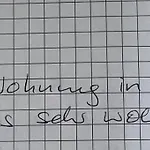 Wohnung in
s sehr wo